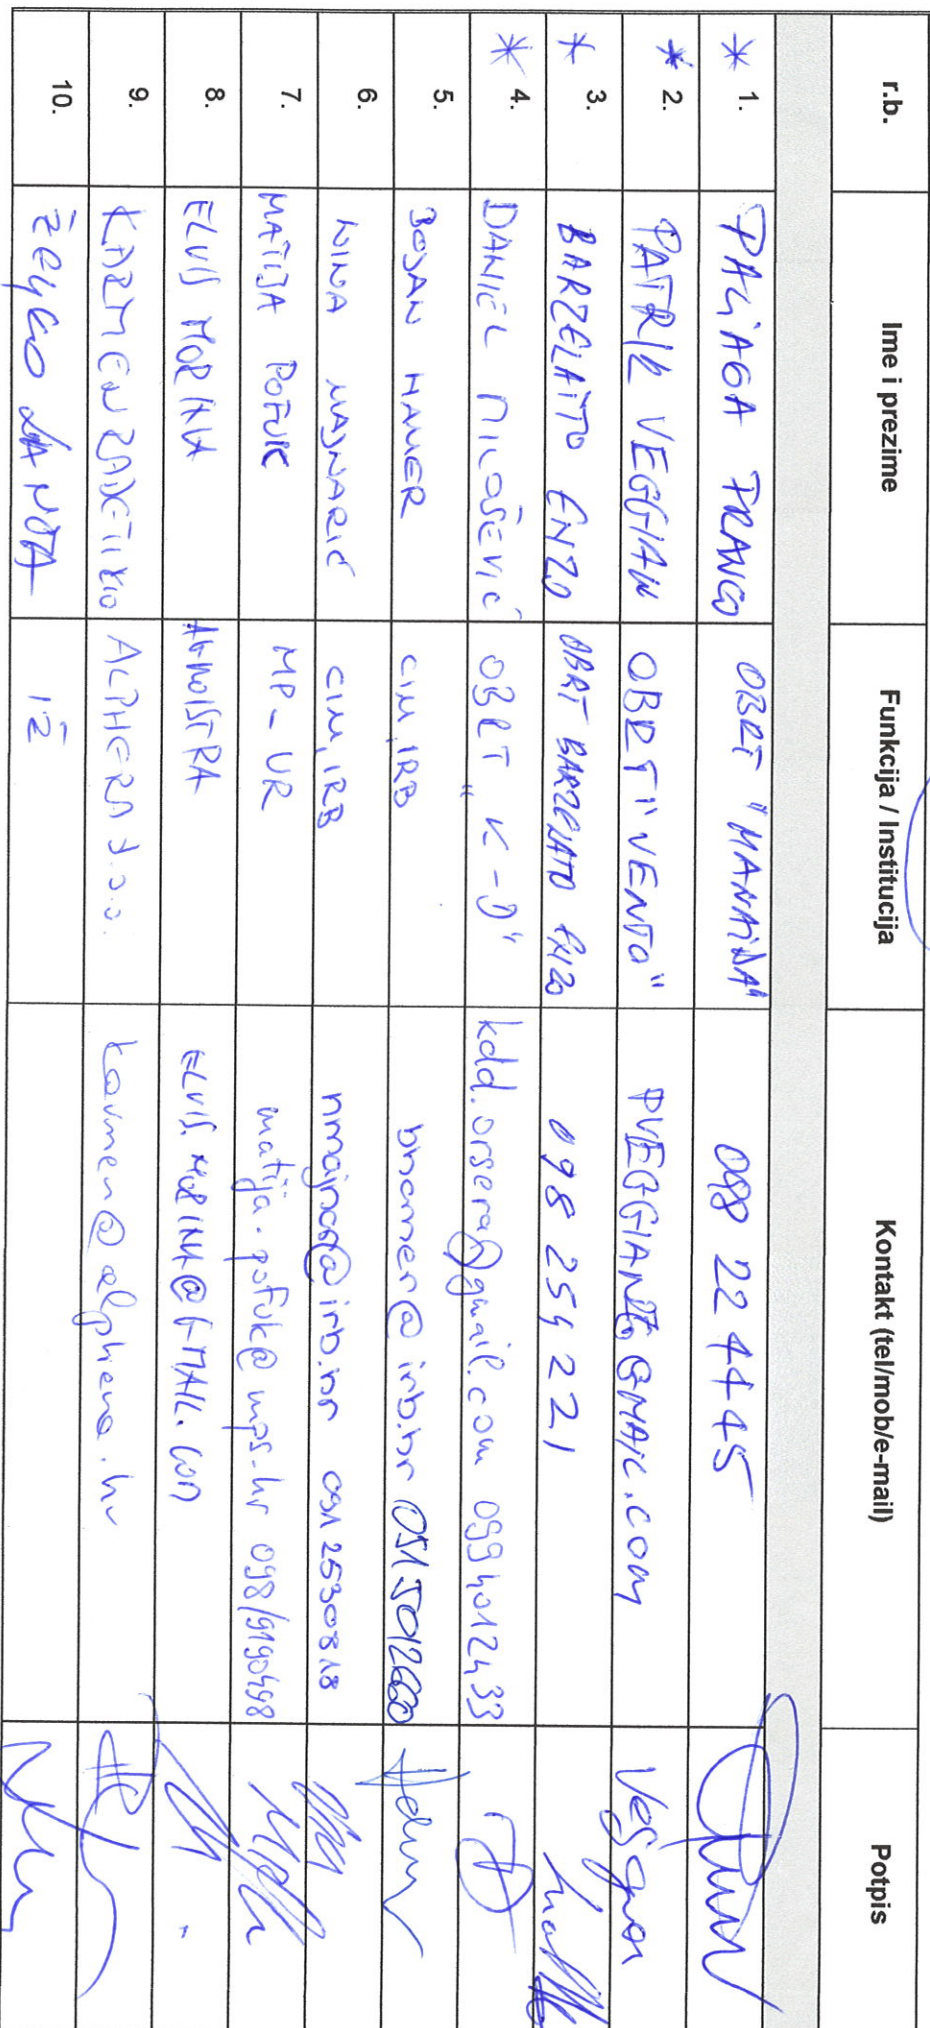 r.b. Ime i prezime Funkcija / Institucija Kontakt (tel/mob/e-mail) Potpis
* 1. PALIAGA FRANCO OBRT "MANAIDA" 098 22 44 45
* 2. PATRIK VEGGIAN OBRT "VENTO"
* 3. BARZELATTO ENZO OBRT BARZELATTO ENZO 098 254 221
* 4. DANIEL MILOŠEVIĆ OBRT "K-D" kdd.orsera@gmail.com 0994012433
5. BOJAN HAMER CIM, IRB bhamer@irb.hr
6. NINA MAJNARIĆ CIM, IRB nmajnar@irb.hr 091 2530818
7. MATIJA POFUK MP-UR matija.pofuk@mps.hr 098/9190498
8. ELVIS MORINA ELVIS.MORINA@GMAIL.COM
9. ALPHERA d.o.o. karmen@alphera.hr
10. IŽ